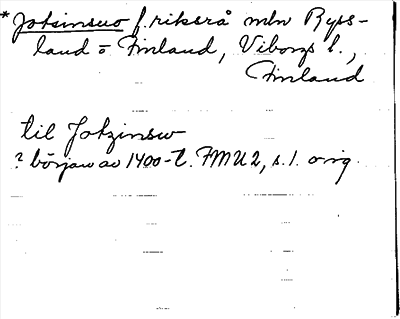 * Jotsinsuo f. riksrå mln Ryss-
land o Finland, Viborgs l.,
Finland
til Jotzinsw
? början av 1400-t. FMU 2, s. 1. orig.